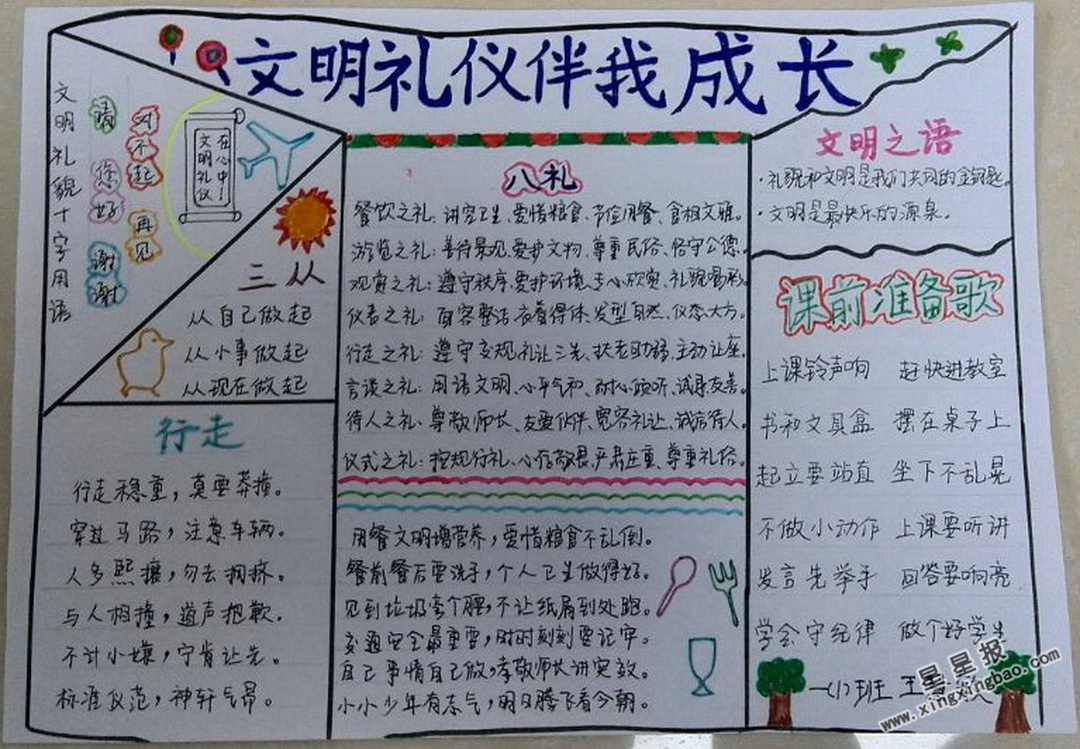 文明礼仪伴我成长
文明礼貌十字用语
请
您好
谢谢
对不起
再见
在心中!
文明礼仪
三从
从自己做起
从小事做起
从现在做起
行走
行走稳重，莫要莽撞。
穿过马路，注意车辆。
人多熙攘，勿去拥挤。
与人相撞，道声抱歉。
不计小嫌，宁肯让先。
标准仪范，神轩气昂。
八礼
餐饮之礼：讲究卫生、爱惜粮食、节俭用餐、食相文雅。
游览之礼：善待景观、爱护文物、尊重民俗、恪守公德。
观赏之礼：遵守秩序、爱护环境、专心欣赏、礼貌喝彩。
仪表之礼：面容整洁、衣着得体、发型自然、仪态大方。
行走之礼：遵守交规、礼让三先、扶老助弱、主动让座。
言谈之礼：用语文明、心平气和、耐心倾听、诚恳友善。
待人之礼：尊敬师长、友爱伙伴、宽容礼让、诚信待人。
仪式之礼：按规行礼、心存敬畏、严肃庄重、尊重礼俗。
用餐文明增营养，爱惜粮食不乱倒。
餐前餐后要洗手，个人卫生做得好。
见到垃圾弯个腰，不让纸屑到处跑。
交通安全最重要，时时刻刻要记牢。
自己事情自己做，孝敬师长讲实效。
小小少年有志气，明日腾飞看今朝。
文明之语
·礼貌和文明是我们共同的金钥匙。
·文明是最快乐的源泉。
课前准备歌
上课铃声响 赶快进教室
书和文具盒 摆在桌子上
起立要站直 坐下不乱晃
不做小动作 上课要听讲
发言先举手 回答要响亮
学会守纪律 做个好学生
一(1)班 王
星星报
www.xingxingbao.com